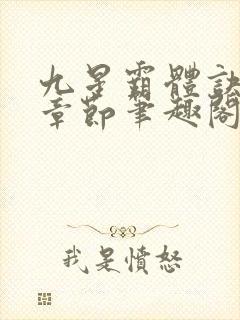 九星霸體訣
章節筆趣閣
我是憤怒